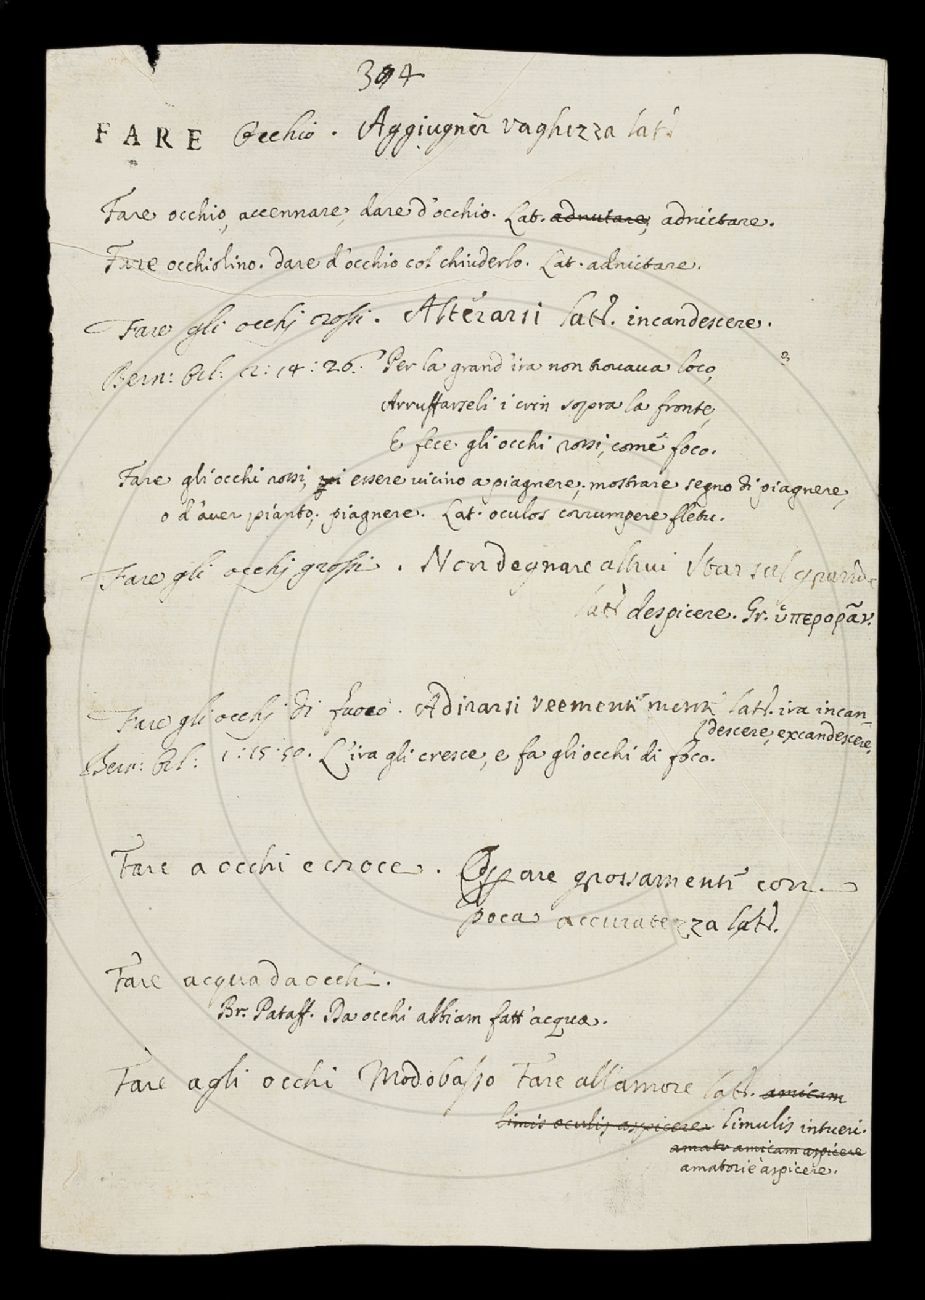 394
FARE Occhio. Aggiugner vaghezza lat.
Fare occhio, accennare, dare d'occhio. Lat. adnutare, adnictare.
Fare occhiolino. Dare d'occhio col chiuderlo. Lat. adnictare.
Fare gli occhj rossi. Alterarsi lat. incandescere.
Bern: Orl: 2: 14: 26. Per la grand'ira non trovava loco, 3
Arruffarseli i crin sopra la fronte,
E fece gli occhi rossi, come foco.
Fare gli occhi rossi, essere vicino a piagnere, mostrare segno di piagnere,
o d'aver pianto, piagnere. Lat. oculos corrumpere fletu.
Fare gli occhj grossi. Non degnare altrui star sul grande
lat. despicere. Gr. ὑπερορᾶν.
Fare gli occhj di fuoco. Adirarsi veementemente lat. ira incan-
descere, excandescere,
Bern: Orl: 1: 15: 50. L'ira gli cresce, e fa gli occhi di foco.
Fare a occhi e croce. Operare grossamente con
poca accuratezza lat.
Fare acqua da occhi.
Br. Pataff. Da occhi abbiam fatt'acqua.
Fare agli occhi Modo basso Fare all'amore lat. amicam
limis oculis aspicere limulis intueri.
amatv amicam aspicere
amatoriè aspicere.